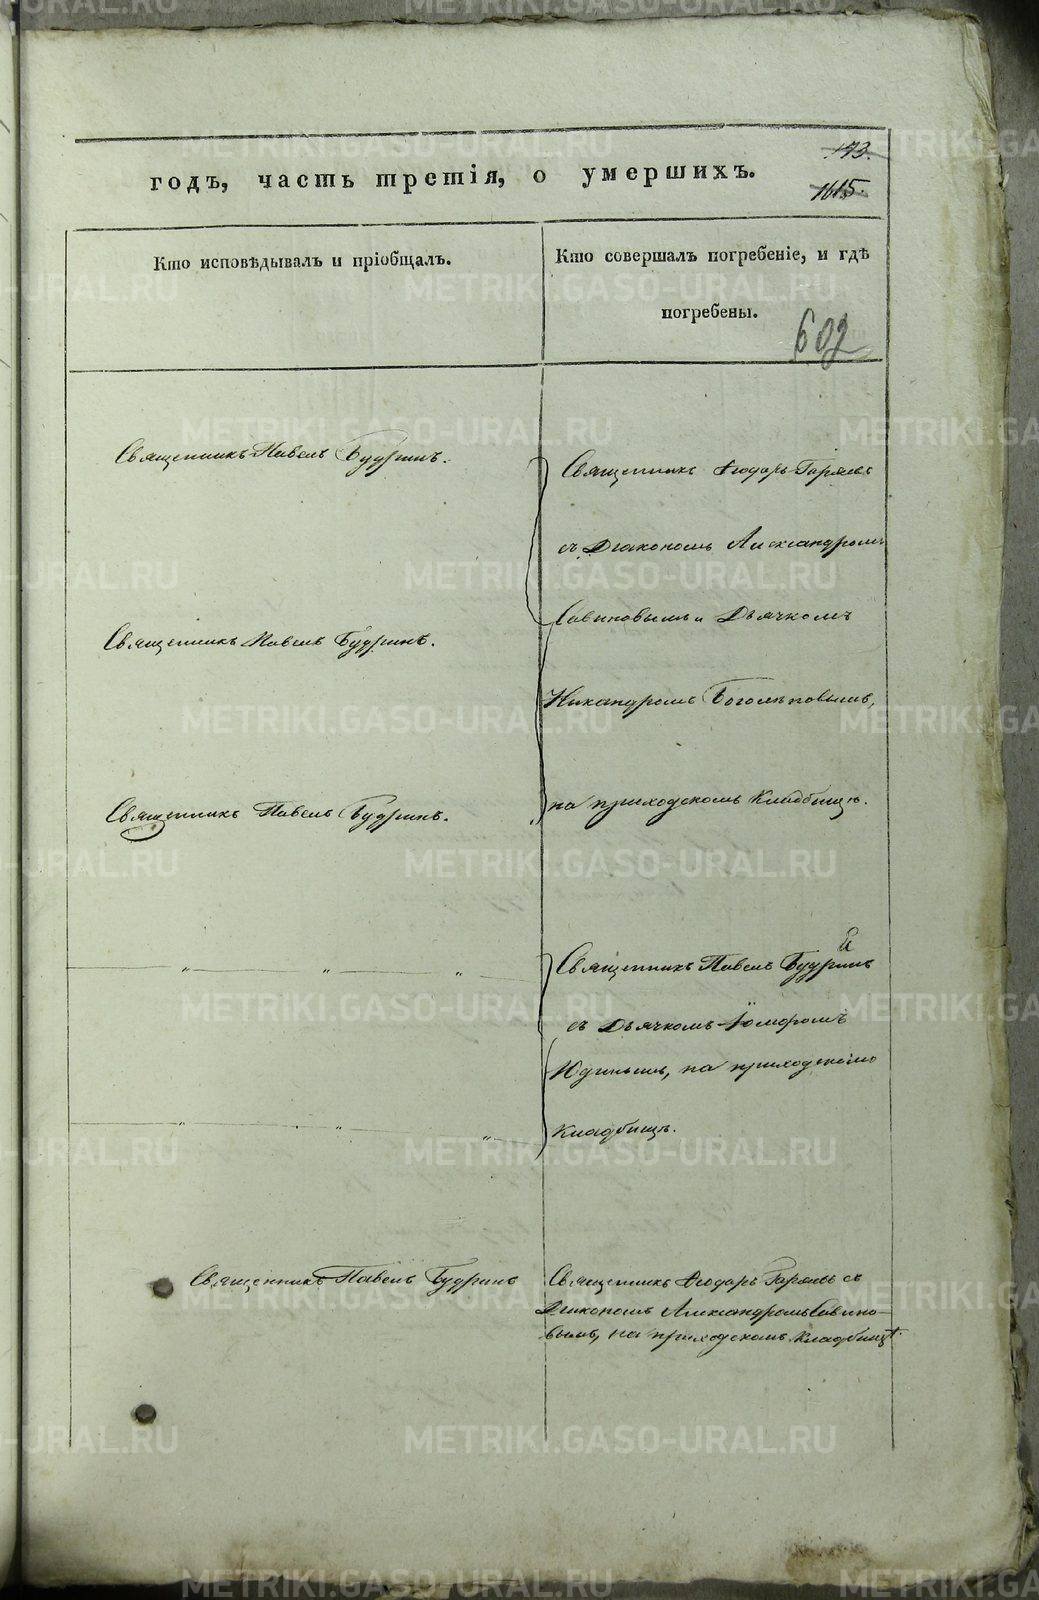 173.
годъ, часть третія, о умершихъ.
1615.
Кто исповѣдывалъ и пріобщалъ.
Кто совершалъ погребеніе, и гдѣ
погребены.
602
Священникъ Павелъ Будринъ.
Священникъ Ѳеодоръ Гаряевъ
съ Діакономъ Александромъ
Савиновымъ и Дьячкомъ
Священникъ Павелъ Будринъ.
Никандромъ Боголѣповымъ,
Священникъ Павелъ Будринъ.
на приходскомъ Кладбищѣ.
Священникъ Павелъ Будринъ
съ Дьячкомъ
Юдинымъ, на приходскомъ
Кладбищѣ.
Священникъ Павелъ Будринъ
Священникъ Ѳеодоръ Гаряевъ съ
Діакономъ Александромъ Савино-
вымъ, на приходскомъ кладбищѣ.
METRIKI.GASO-URAL.RU